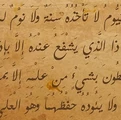 القيوم لا تأخذه سنة ولا نوم ل
ذا الذي يشفع عنده إلا بإذ
يطون بشيء من علمه إلا بم
ولا يئوده حفظهما وهو العلي